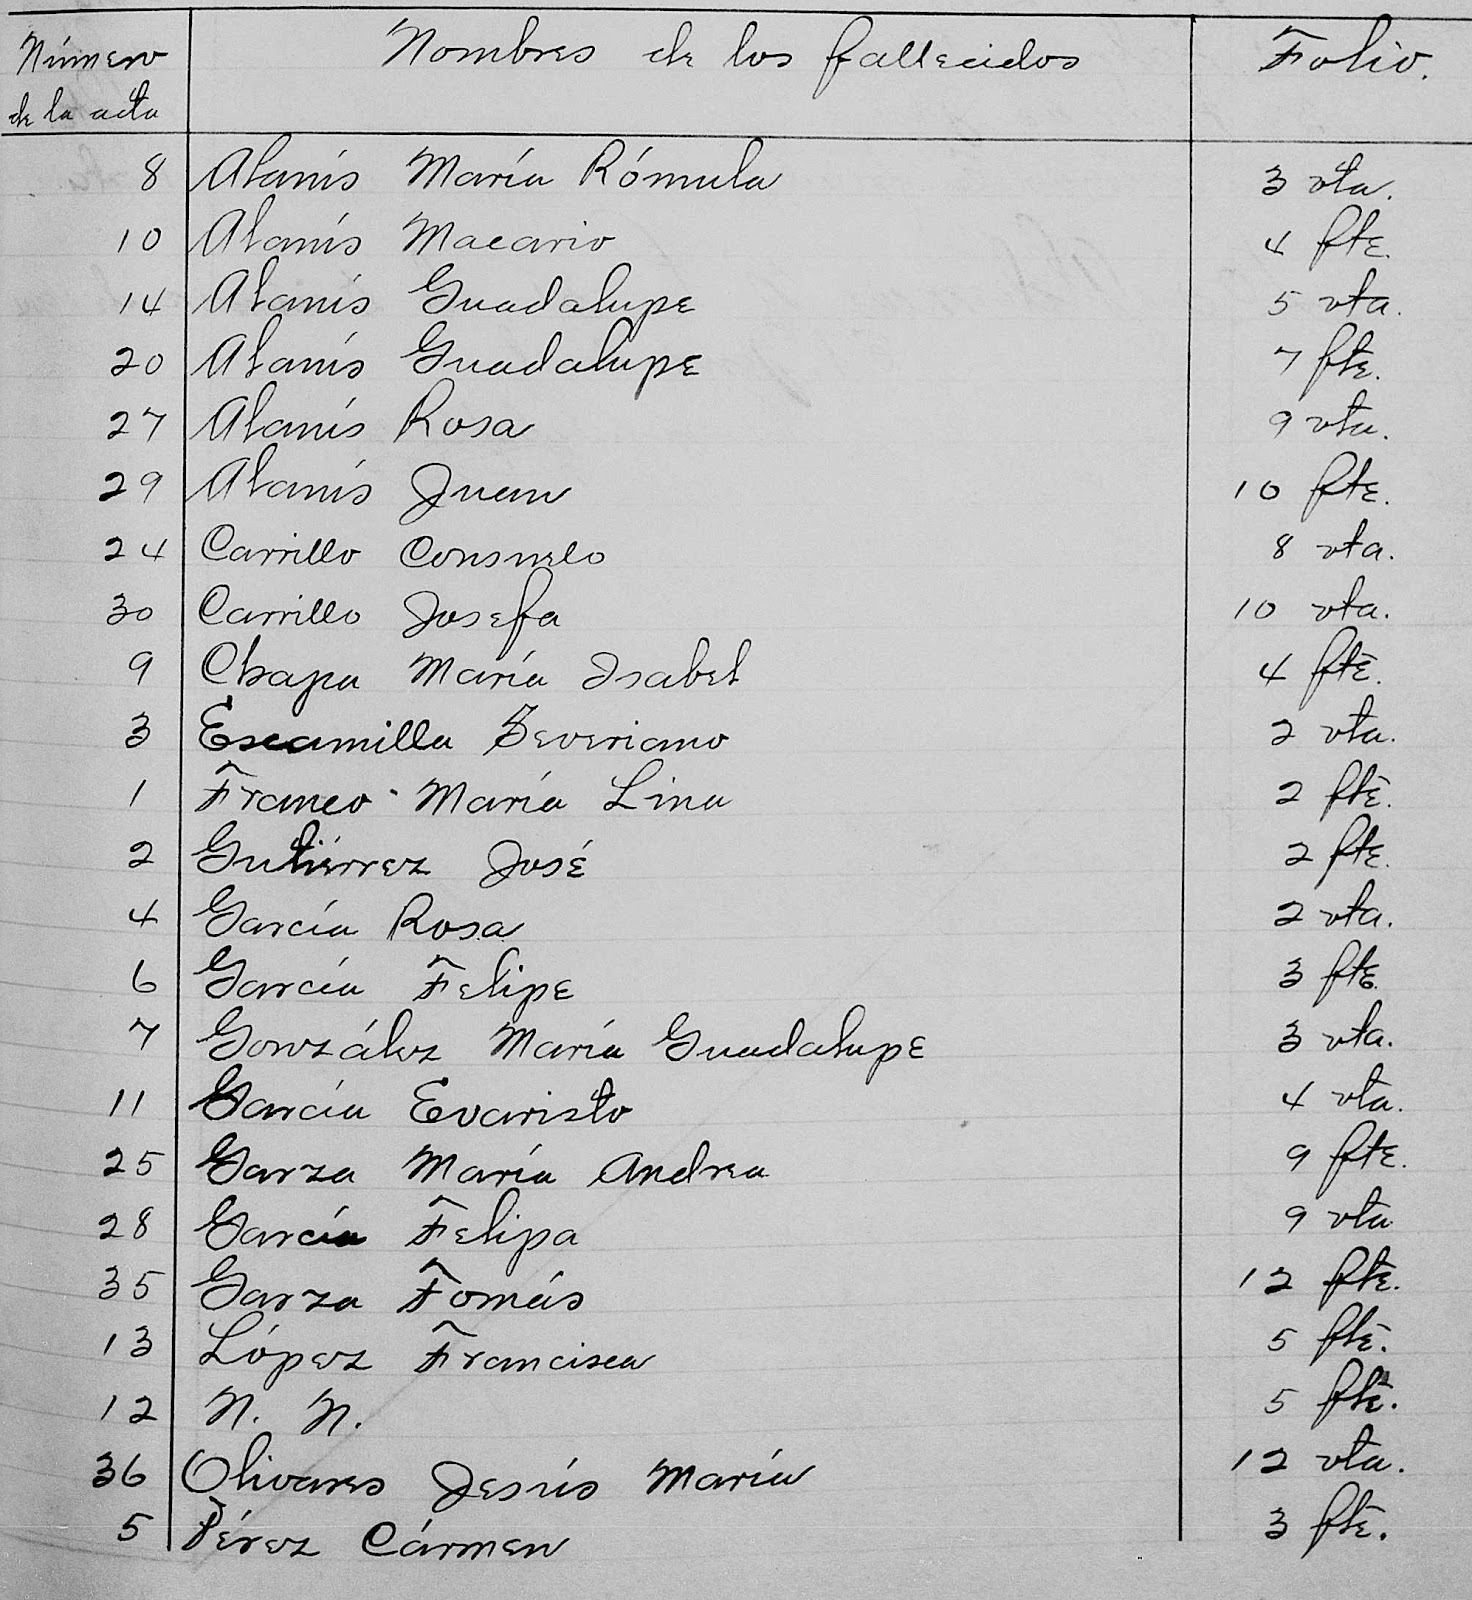 Número de la acta Nombres de los fallecidos Folio.
8 Alanís María Rómula 3 vta.
10 Alanís Macario 4 fte.
14 Alanís Guadalupe 5 vta.
20 Alanís Guadalupe 7 fte.
27 Alanís Rosa 9 vta.
29 Alanís Juan 10 fte.
24 Carrillo Consuelo 8 vta.
30 Carrillo Josefa 10 vta.
9 Chapa María Isabel 4 fte.
3 Escamilla Severiano 2 vta.
1 Franco María Lina 2 fte.
2 Gutiérrez José 2 fte.
4 García Rosa 2 vta.
6 García Felipe 3 fte.
7 González María Guadalupe 3 vta.
11 García Evaristo 4 vta.
25 Garza María Andrea 9 fte.
28 García Felipa 9 vta
35 Garza Tomás 12 fte.
13 López Francisca 5 fte.
12 N. N. 5 fte.
36 Olivares Jesús María 12 vta.
5 Pérez Cármen 3 fte.